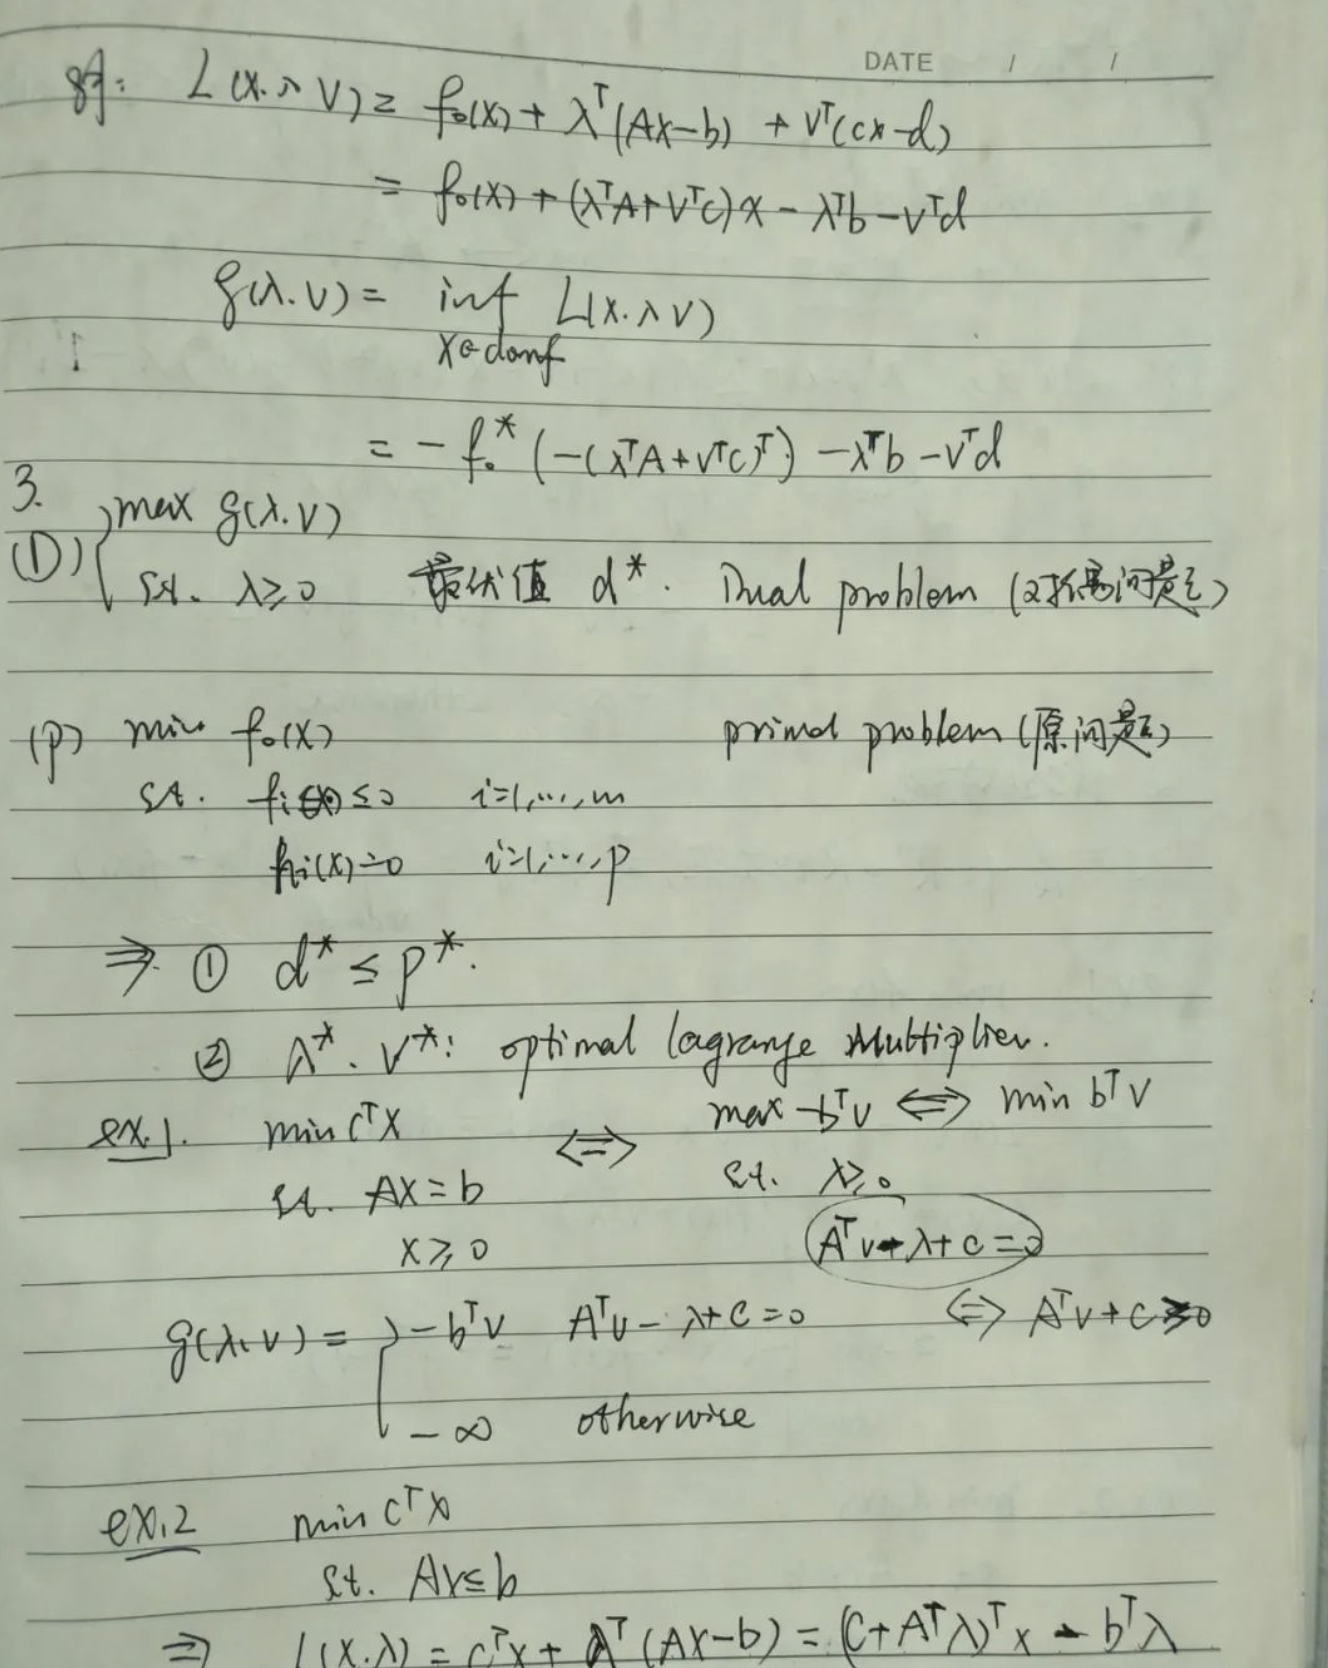 DATE / /
解: L(x.λ V) = f₀(x) + λᵀ(Ax-b) + Vᵀ(cx-d)
= f₀(x) + (λᵀA+Vᵀc)x - λᵀb - Vᵀd
g(λ.V) = inf L(x.λ V)
x∈domf
= - f₀* (-(λᵀA+Vᵀc)ᵀ) - λᵀb - Vᵀd
3.
(D) { max g(λ.V)
s.t. λ≥0 最优值 d*. Dual problem (对偶问题)
(p) min f₀(x) primal problem (原问题)
s.t. fi(x) ≤0 i=1,…,m
hi(x)=0 i=1,…,p
⇒ ① d* ≤ p*.
② λ*. V*: optimal lagrange Multiplier.
ex.1. min cᵀx ⇔ max -bᵀv ⇔ min bᵀv
s.t. Ax=b s.t. λ≥0
x≥0 Aᵀv-λ+c=0
g(λ,v) = { -bᵀv Aᵀv-λ+c=0 ⇔ Aᵀv+c≥0
-∞ otherwise
ex.2 min cᵀx
s.t. Ax≤b
⇒ L(x.λ) = cᵀx + λᵀ(Ax-b) = (C+Aᵀλ)ᵀx - bᵀλ